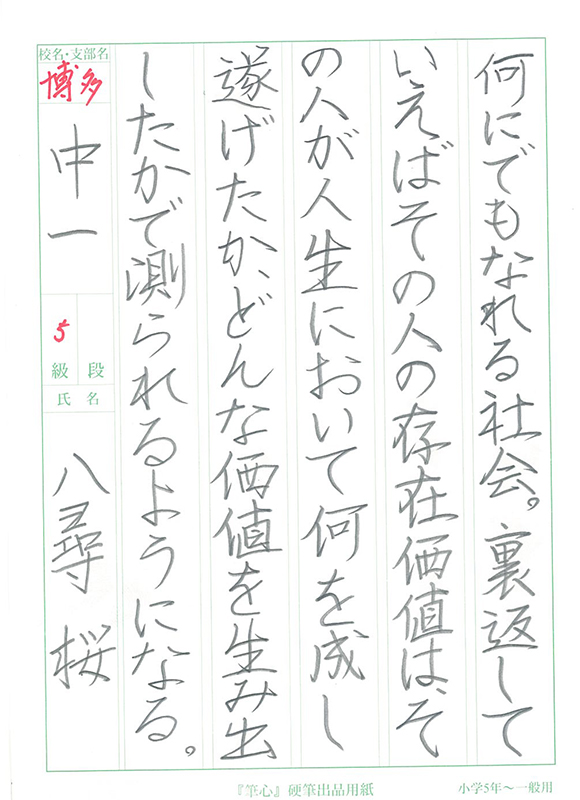 何にでもなれる社会。裏返して
いえばその人の存在価値は、そ
の人が人生において何を成し
遂げたか、どんな価値を生み出
したかで測られるようになる。
校名・支部名
博多
中一
5
級 段
氏名
八尋 桜
『筆心』硬筆出品用紙
小学5年〜一般用